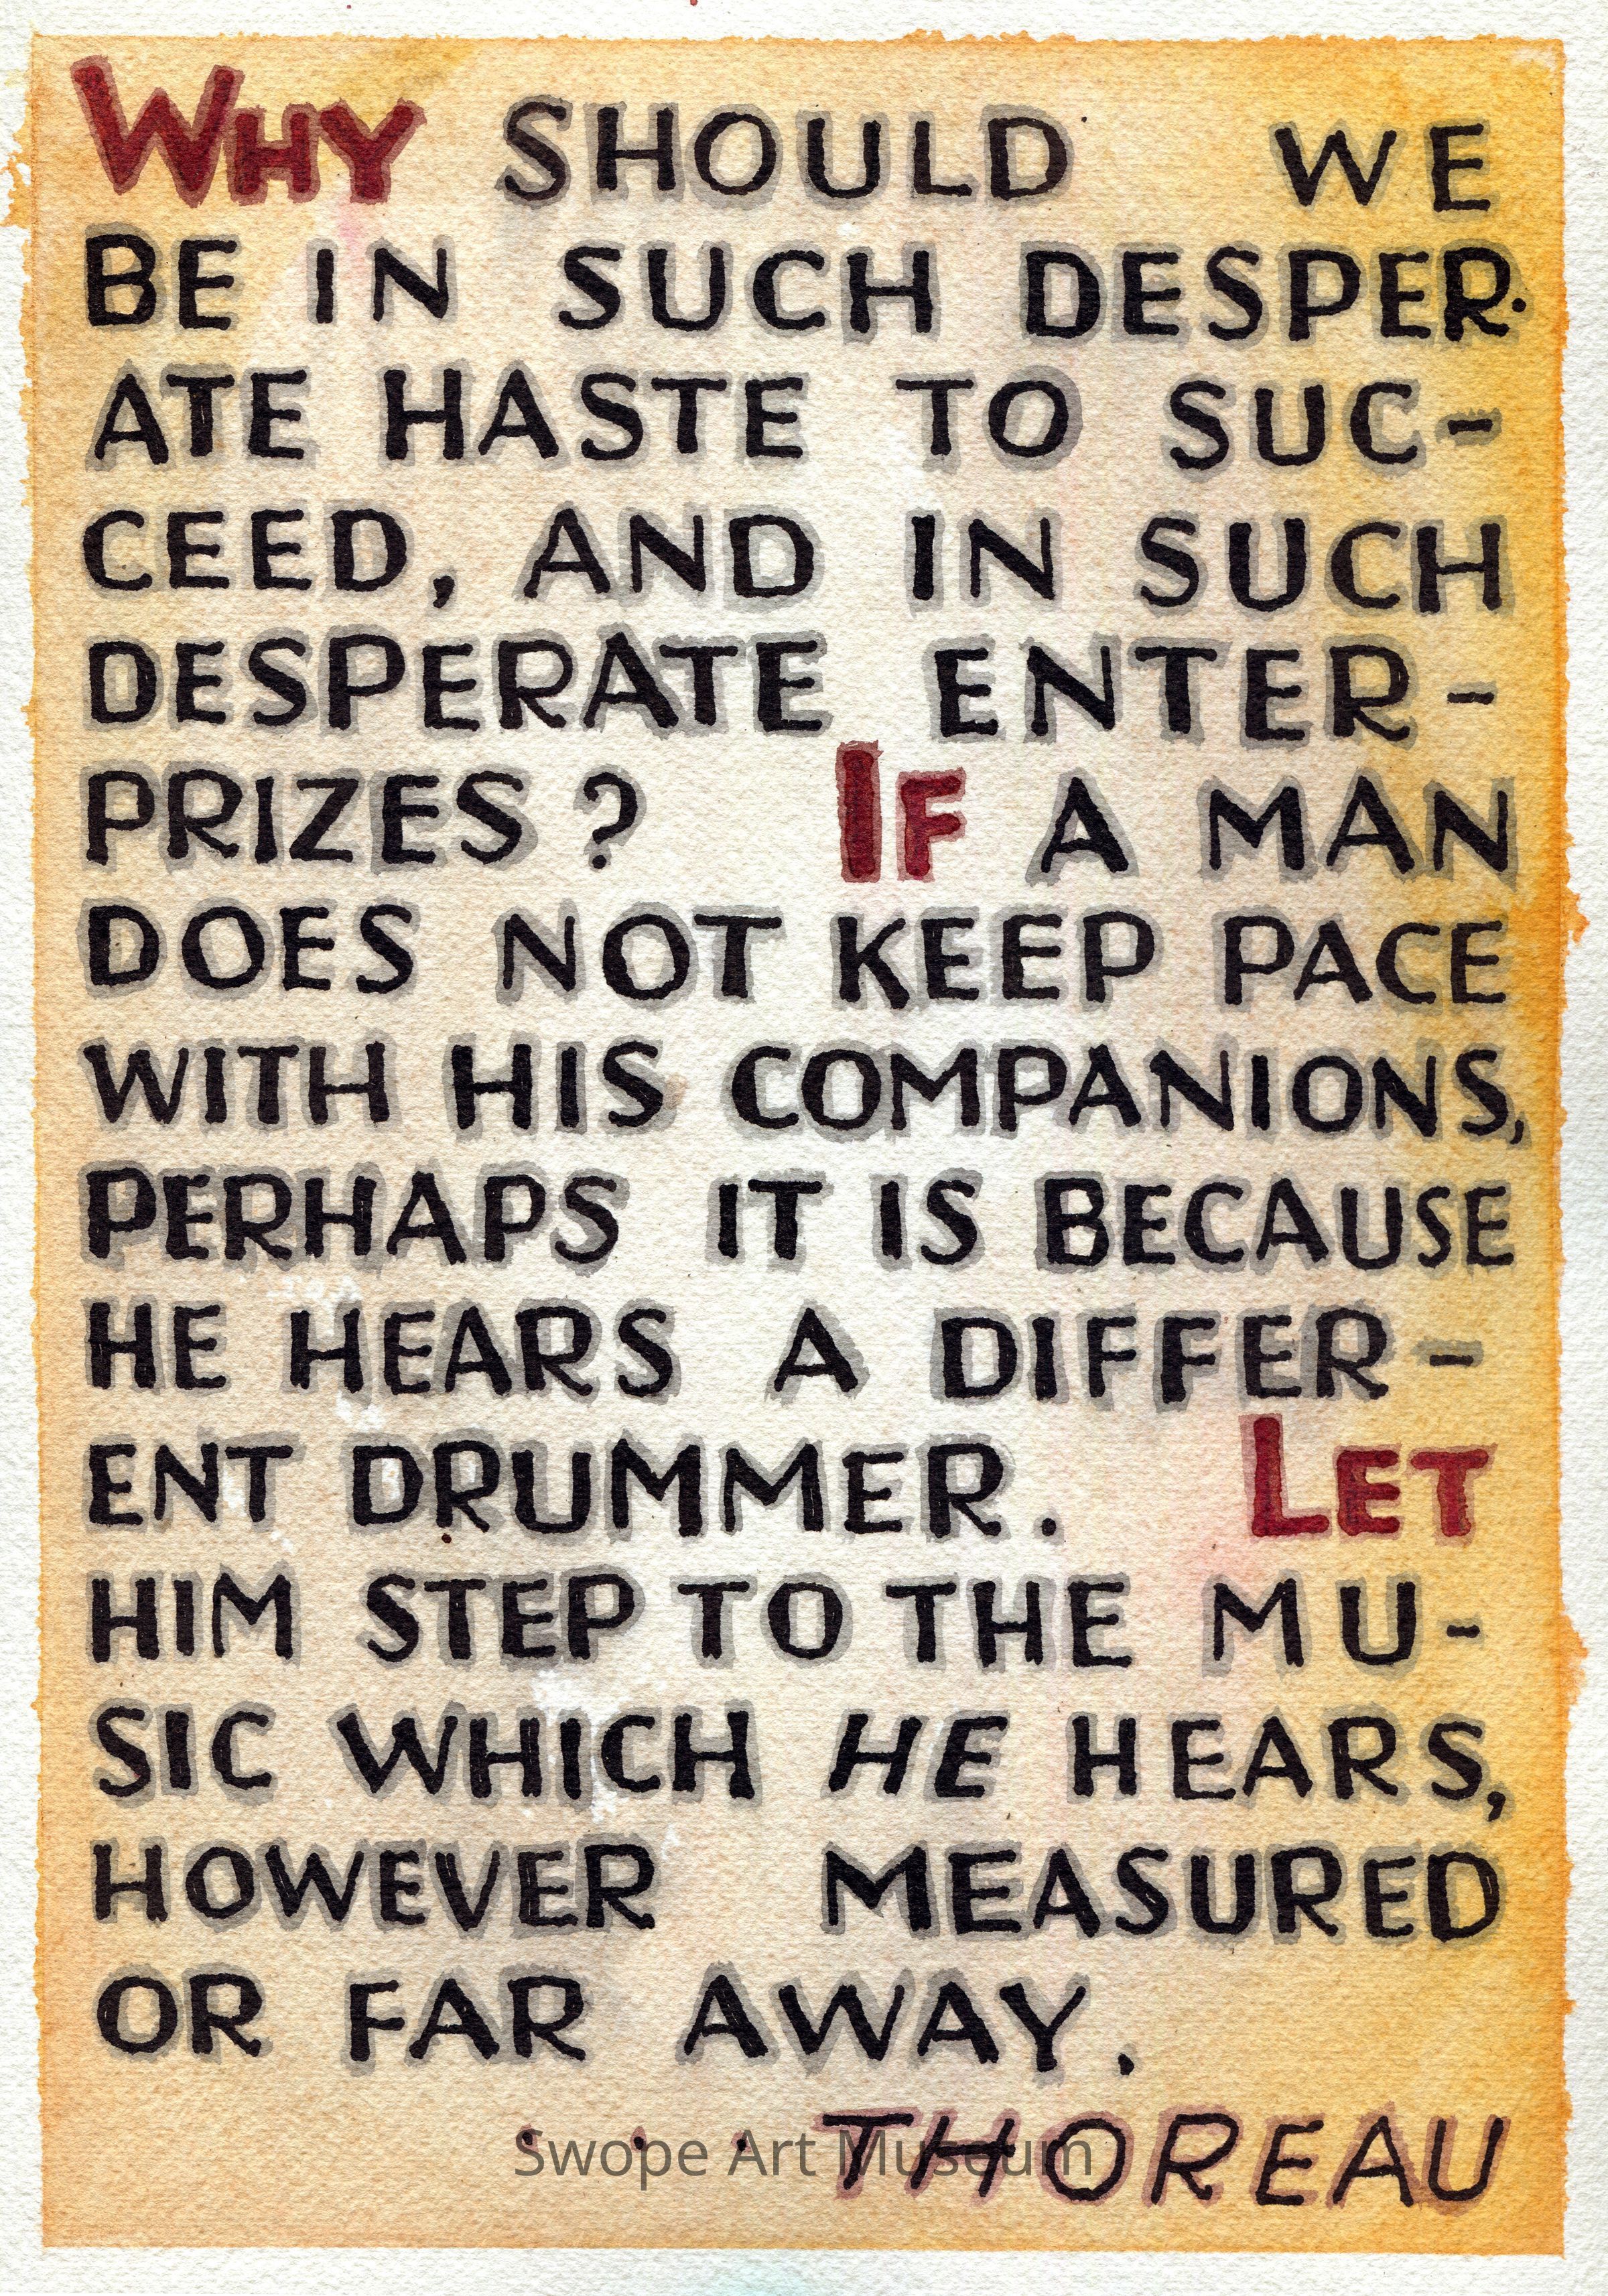 WHY SHOULD WE
BE IN SUCH DESPER-
ATE HASTE TO SUC-
CEED, AND IN SUCH
DESPERATE ENTER-
PRIZES? IF A MAN
DOES NOT KEEP PACE
WITH HIS COMPANIONS,
PERHAPS IT IS BECAUSE
HE HEARS A DIFFER-
ENT DRUMMER. LET
HIM STEP TO THE MU-
SIC WHICH HE HEARS,
HOWEVER MEASURED
OR FAR AWAY.
. . . THOREAU
Swope Art Museum